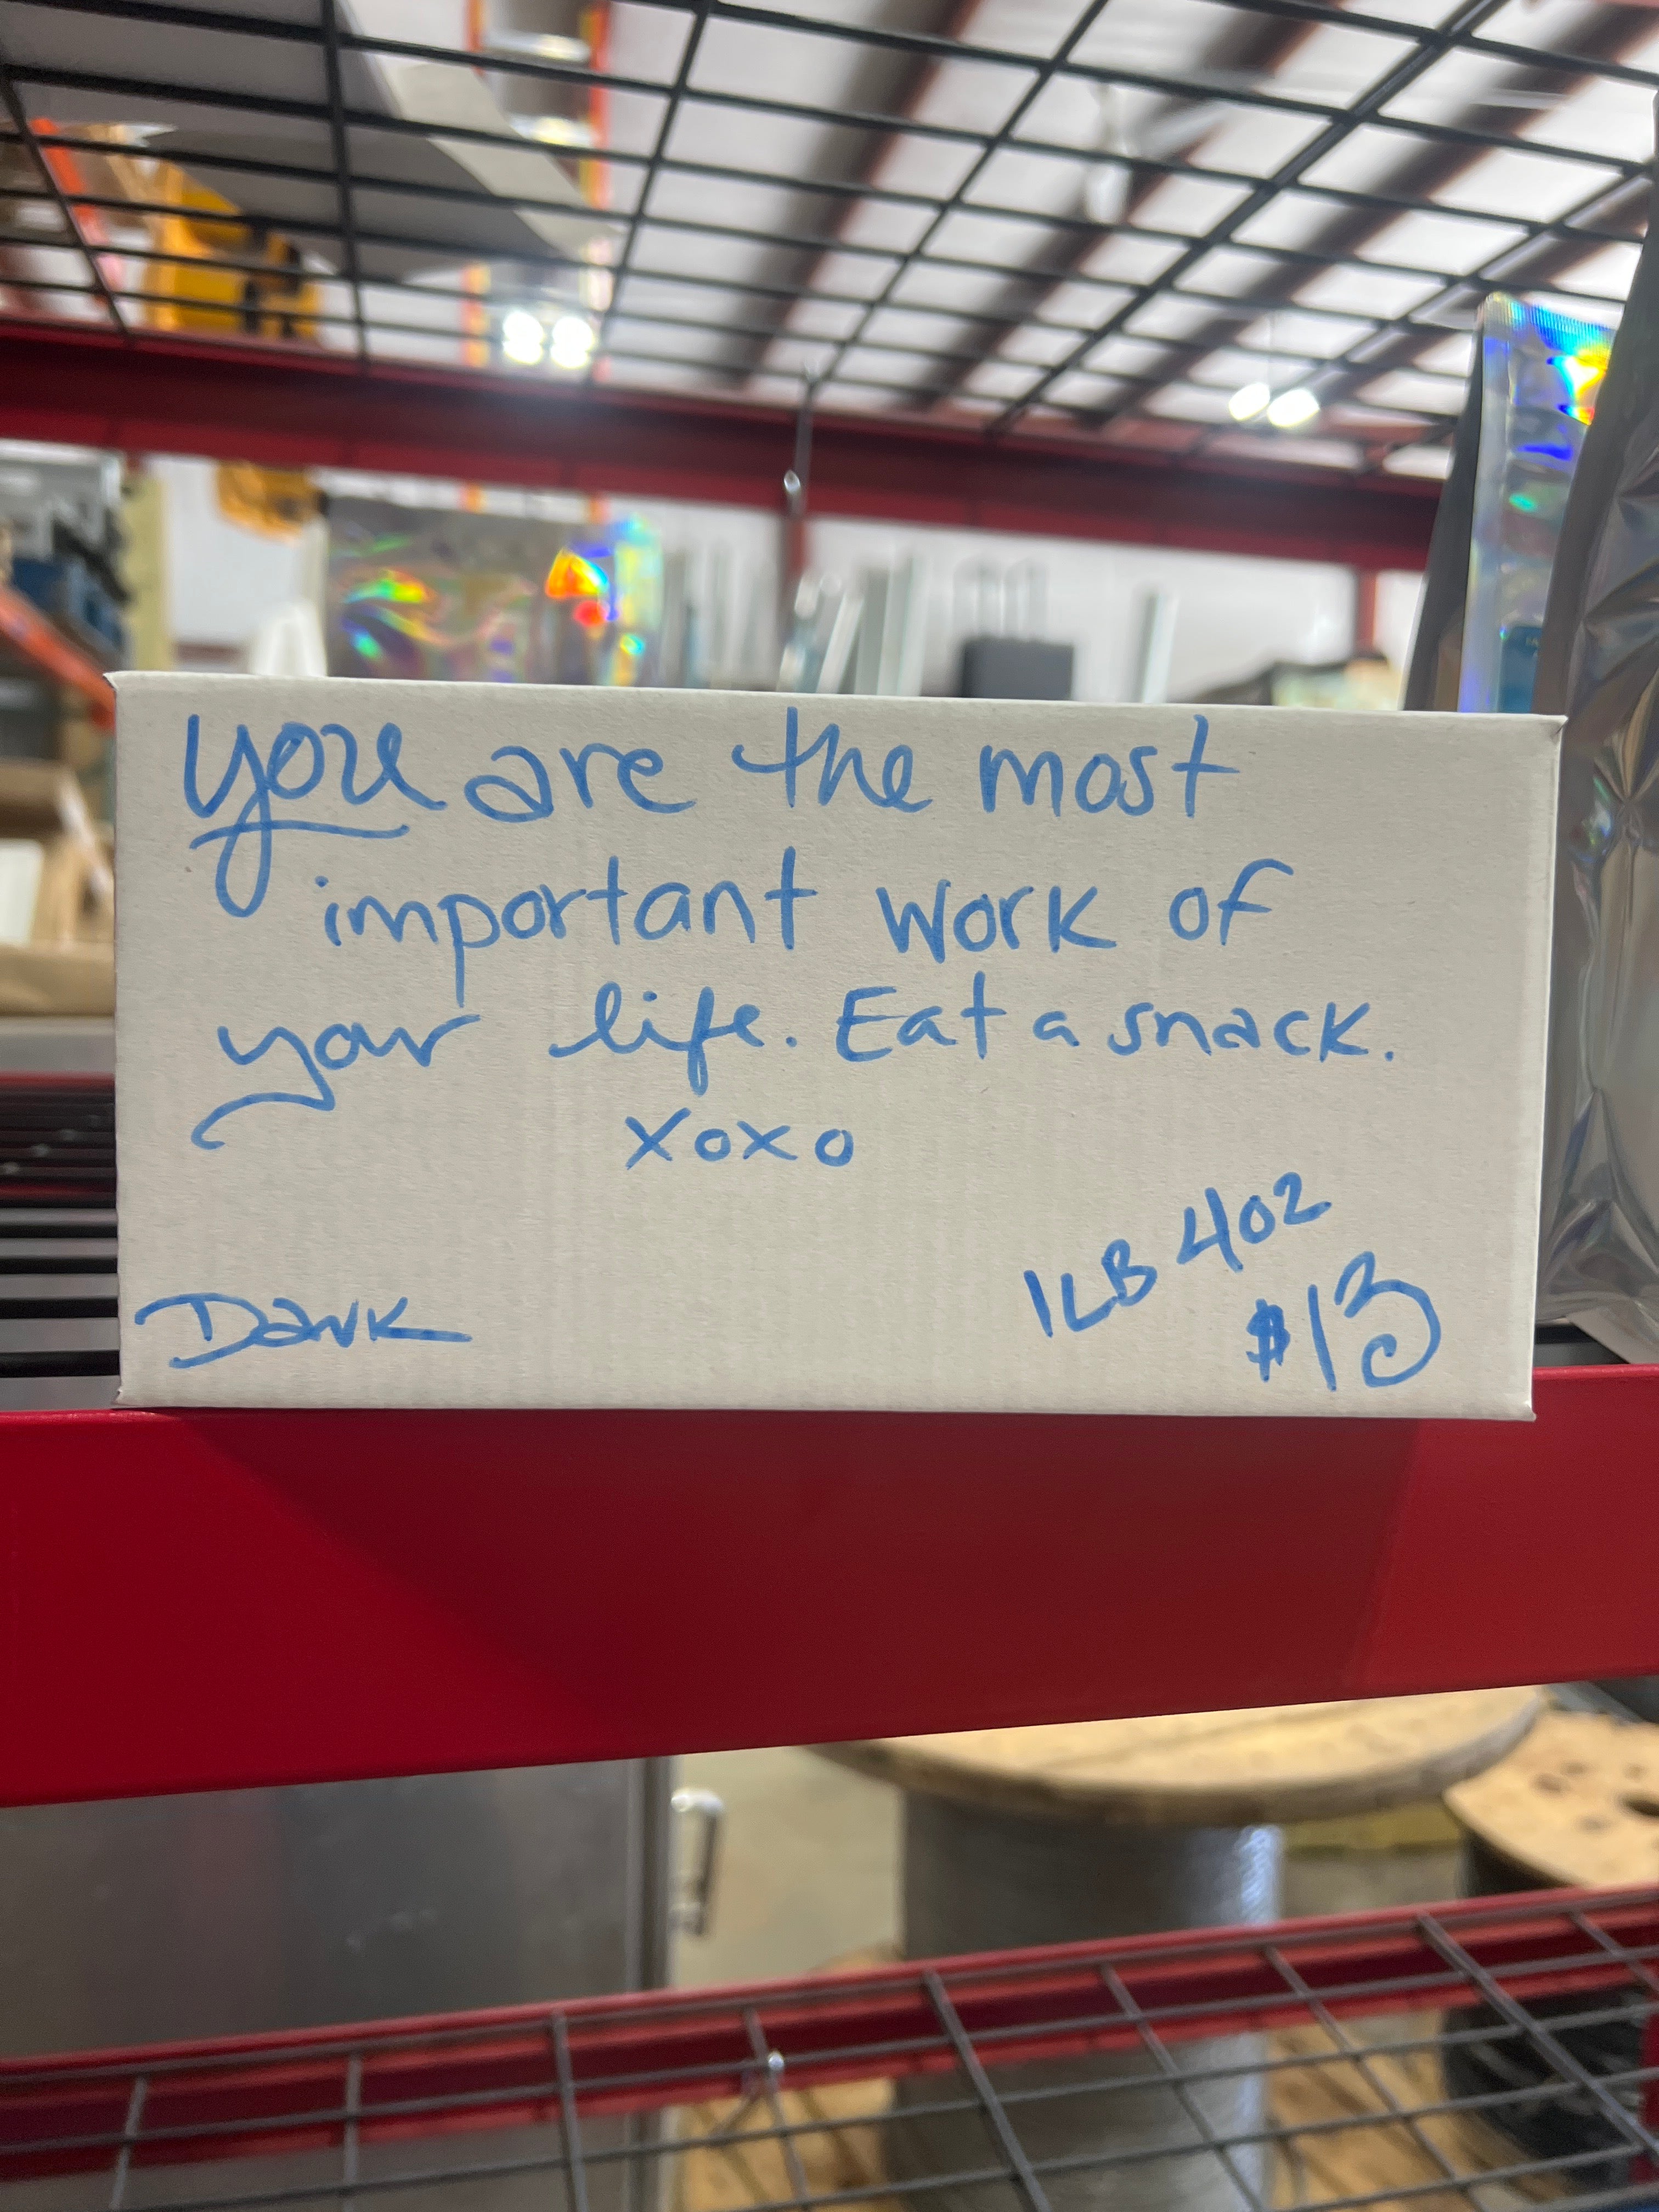 you are the most
important work of
your life. Eat a snack.
xoxo
1LB 4oz
Dark
$13